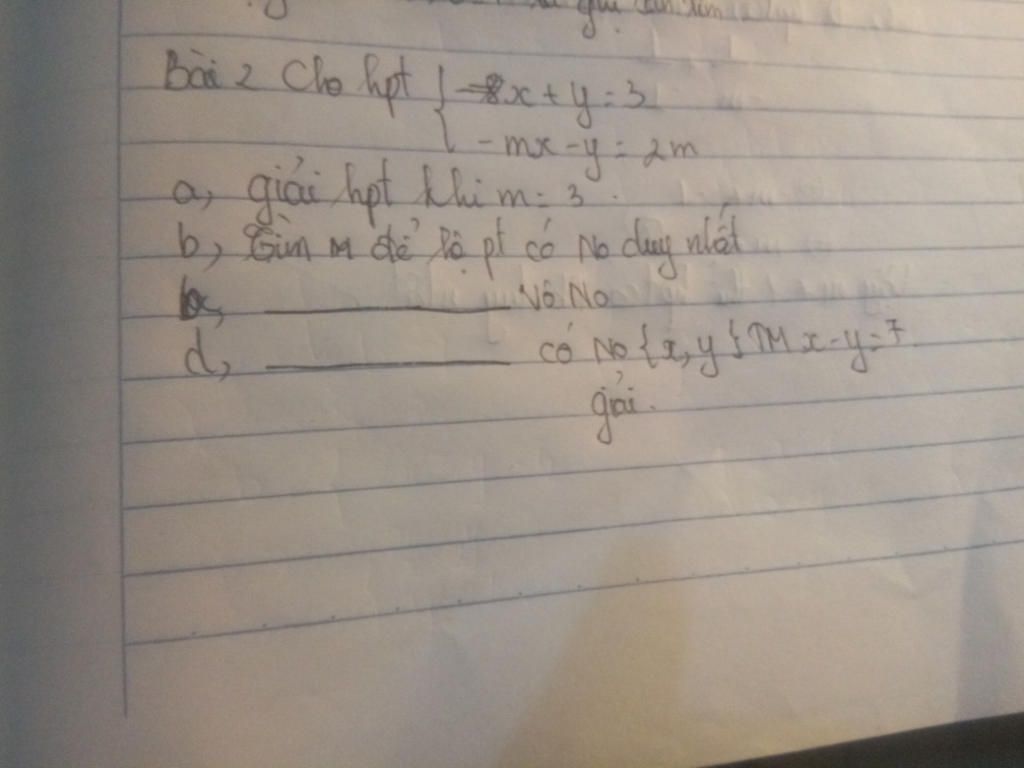 Bài 2 Cho hpt { x + y = 3
- mx - y = 2m
a, giải hpt khi m = 3 .
b, Tìm m để hệ pt có No duy nhất
c, ____________ Vô No
d, ____________ có No {x, y} TM x - y = 7
giải.